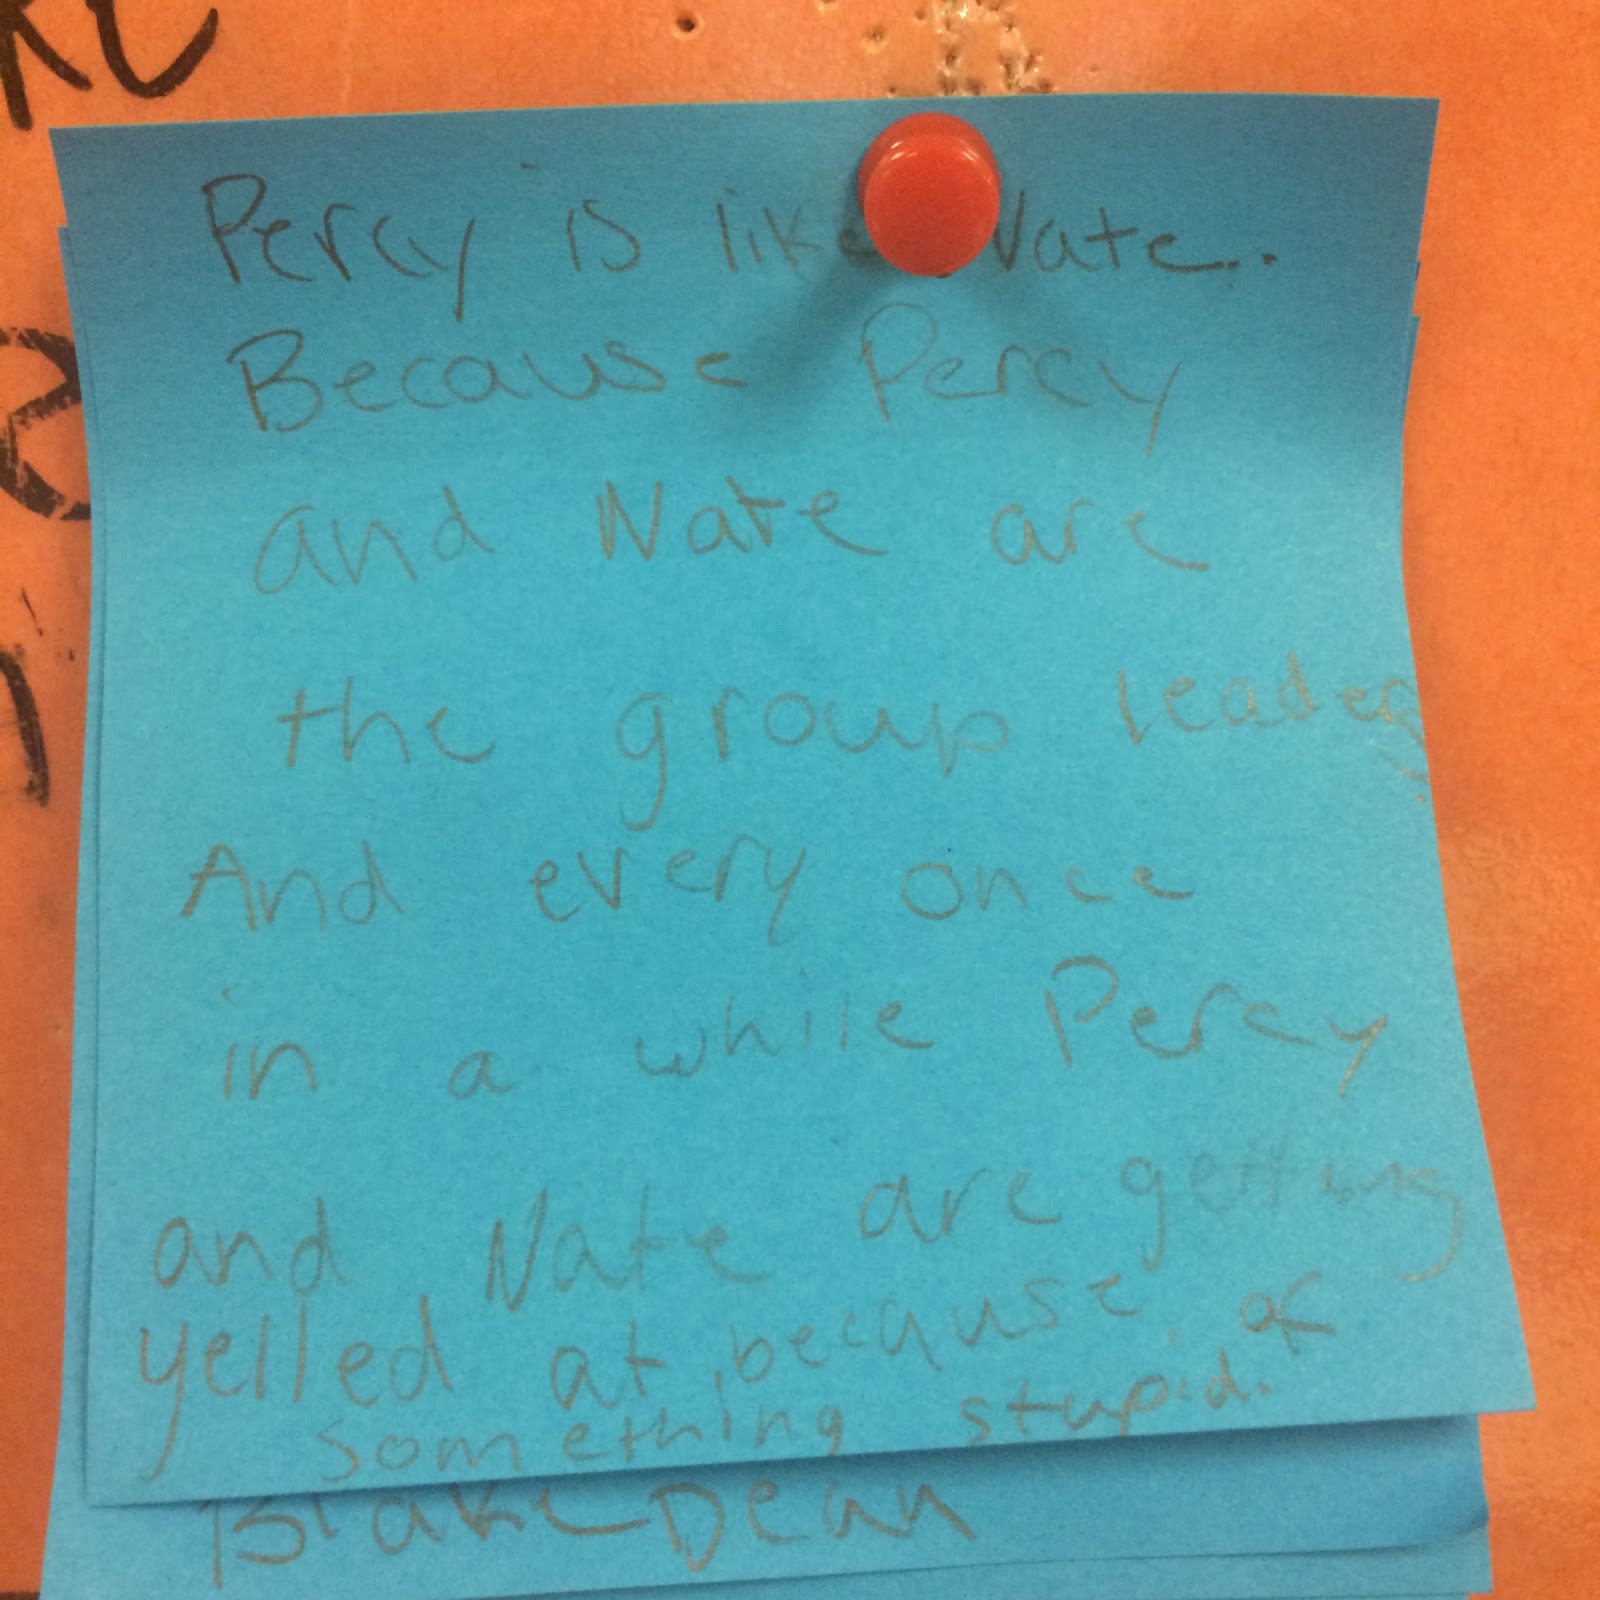 Percy is like Nate.
Because Percy
and Nate are
the group leaders.
And every once
in a while Percy
and Nate are getting
yelled at because of
something stupid.
Blake Dean